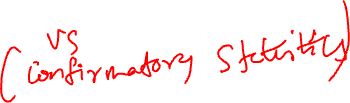 vs
(confirmatory Statistics)